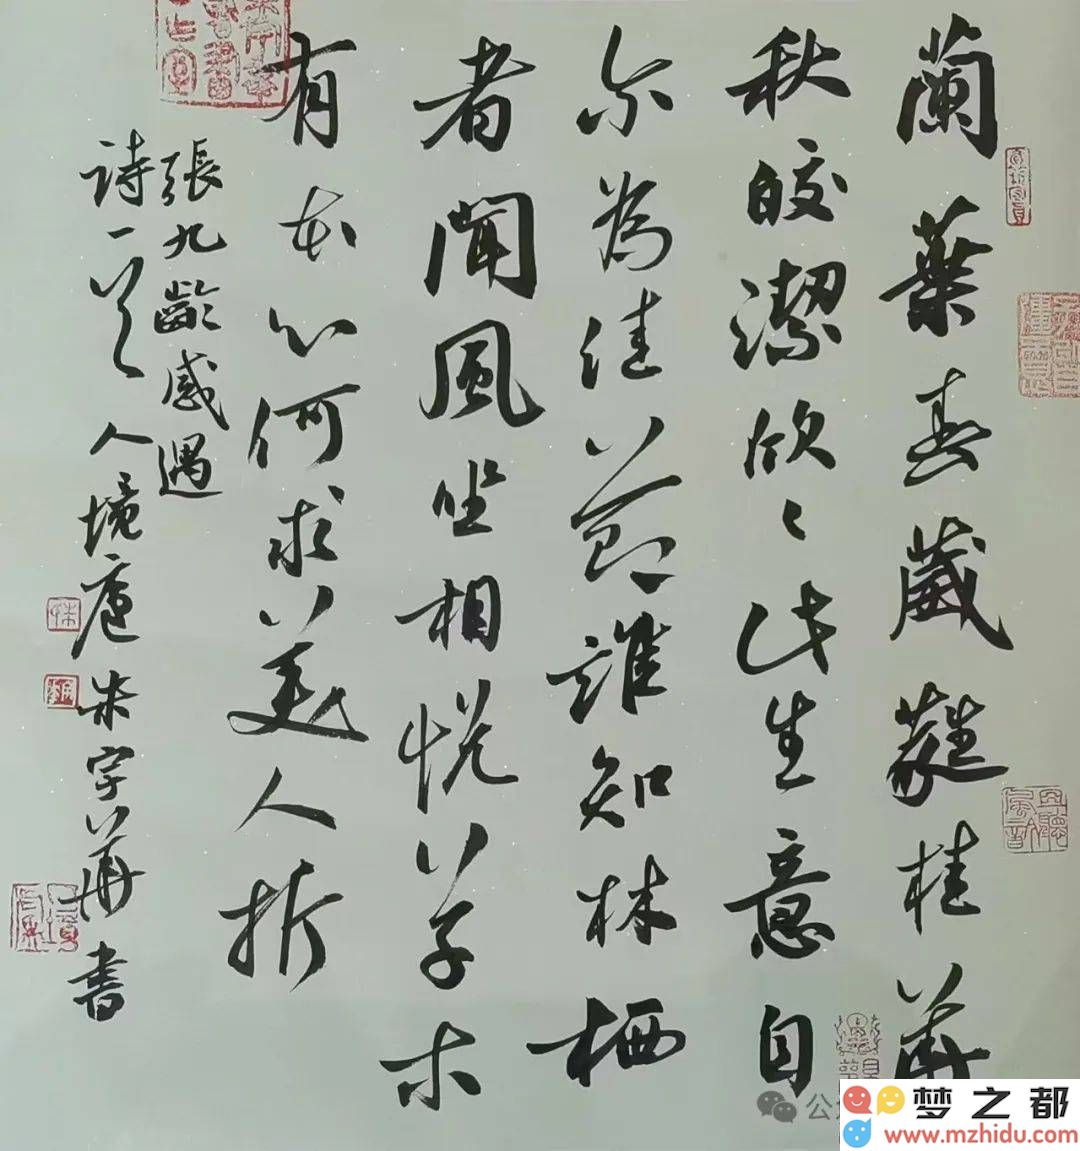 蘭葉春葳蕤桂華
秋皎潔欣〻此生意自
尔為佳節誰知林栖
者聞風坐相悦草木
有本心何求美人折
張九齡感遇
詩一首人境廬朱字華書
朱
公
梦之都
www.mzhidu.com